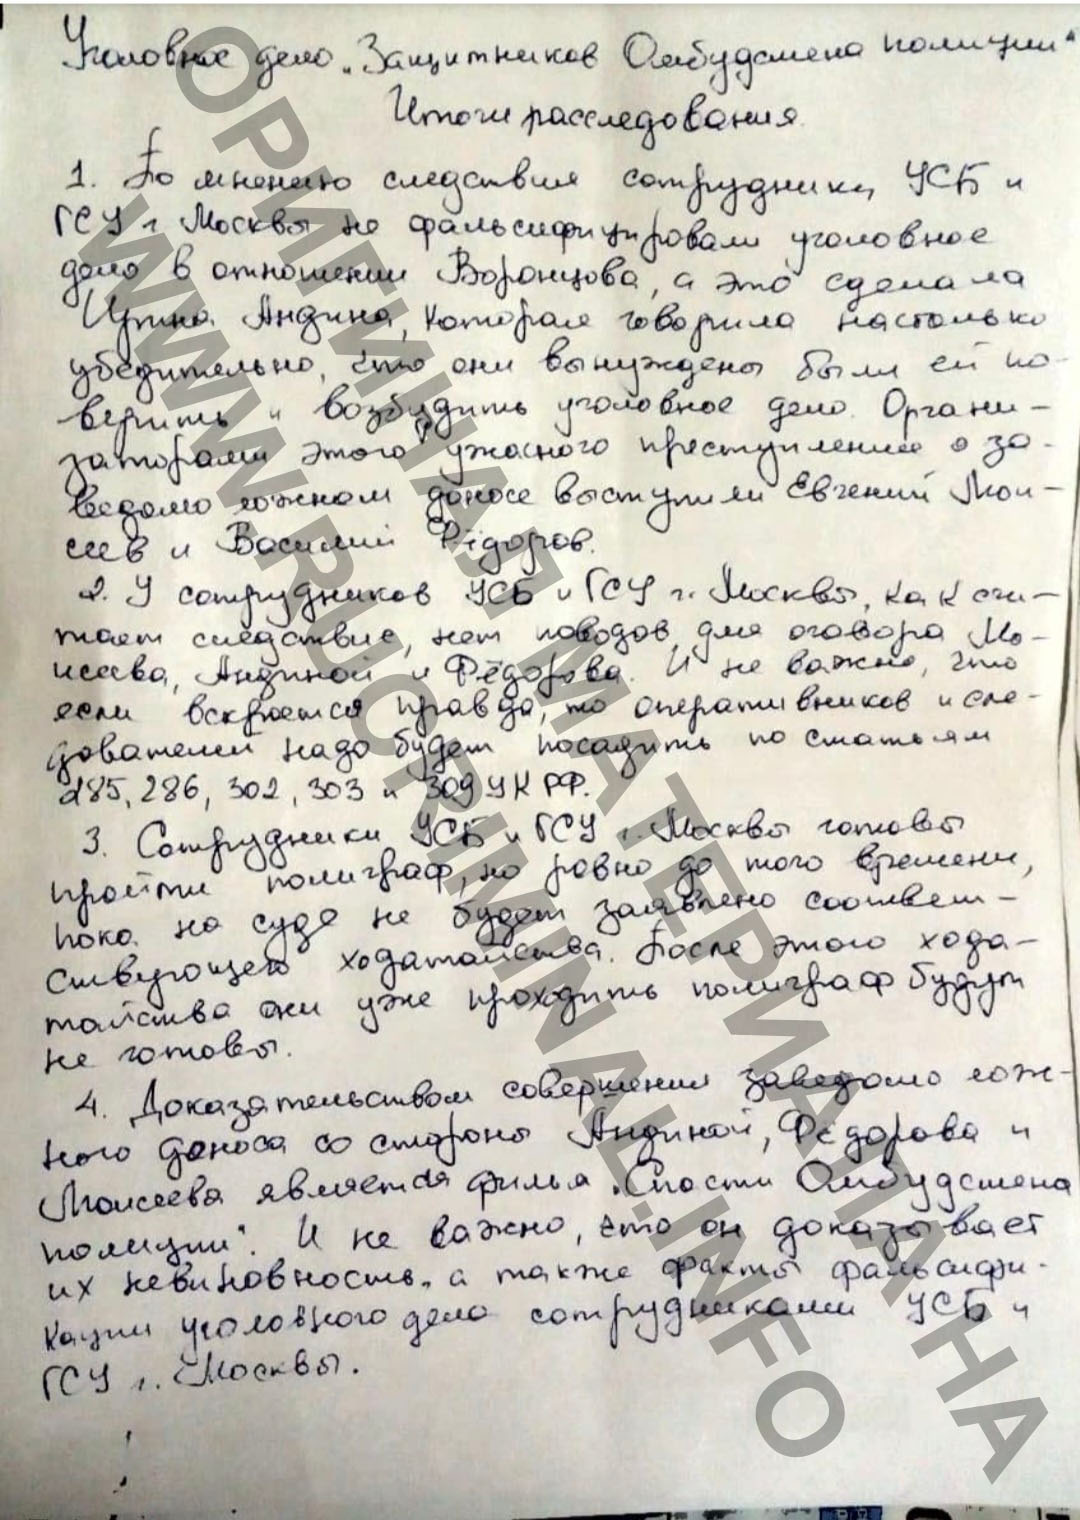 Уголовное дело „Защитников Омбудсмена полиции"
Итоги расследования.
1. По мнению следствия сотрудники УСБ и
ГСУ г. Москвы не фальсифицировали уголовное
дело в отношении Воронцова, а это сделала
Ирина Андина, которая говорила настолько
убедительно, что они вынуждены были ей по-
верить и возбудить уголовное дело. Органи-
заторами этого ужасного преступления о за-
ведомо ложном доносе выступили Евгений Мои-
сеев и Василий Фёдоров.
2. У сотрудников УСБ и ГСУ г. Москвы, как счи-
тает следствие, нет поводов для оговора Мо-
исеева, Андиной и Фёдорова. И не важно, что
если вскроется правда, то оперативников и сле-
дователей надо будет посадить по статьям
285, 286, 302, 303 и 309 УК РФ.
3. Сотрудники УСБ и ГСУ г. Москвы готовы
пройти полиграф, но ровно до того времени,
пока на суде не будет заявлено соответ-
ствующего ходатайства. После этого хода-
тайства они уже проходить полиграф будут
не готовы.
4. Доказательством совершения заведомо лож-
ного доноса со стороны Андиной, Фёдорова и
Моисеева является фильм „Спасти Омбудсмена
полиции". И не важно, что он доказывает
их невиновность, а также факты фальсифи-
кации уголовного дела сотрудниками УСБ и
ГСУ г. Москвы.
ОРИГИНАЛ МАТЕРИАЛА НА
WWW.RUCRIMINAL.INFO